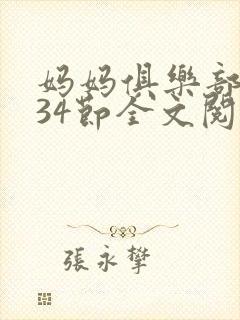 妈妈俱樂部
34節全文閱
張永攀